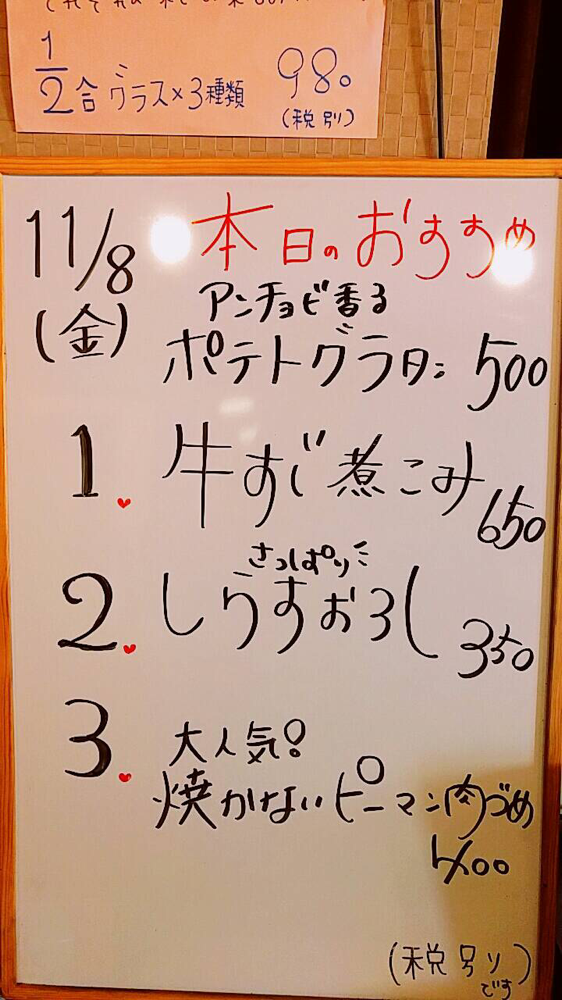 1/2合 グラス×3種類 980
(税別)
11/8 本日のおすすめ
(金)
アンチョビ香る
ポテトグラタン 500
1. 牛すじ煮こみ 650
さっぱり
2. しらすおろし 350
3. 大人気!
焼かないピーマン肉づめ
400
(税別り)
です